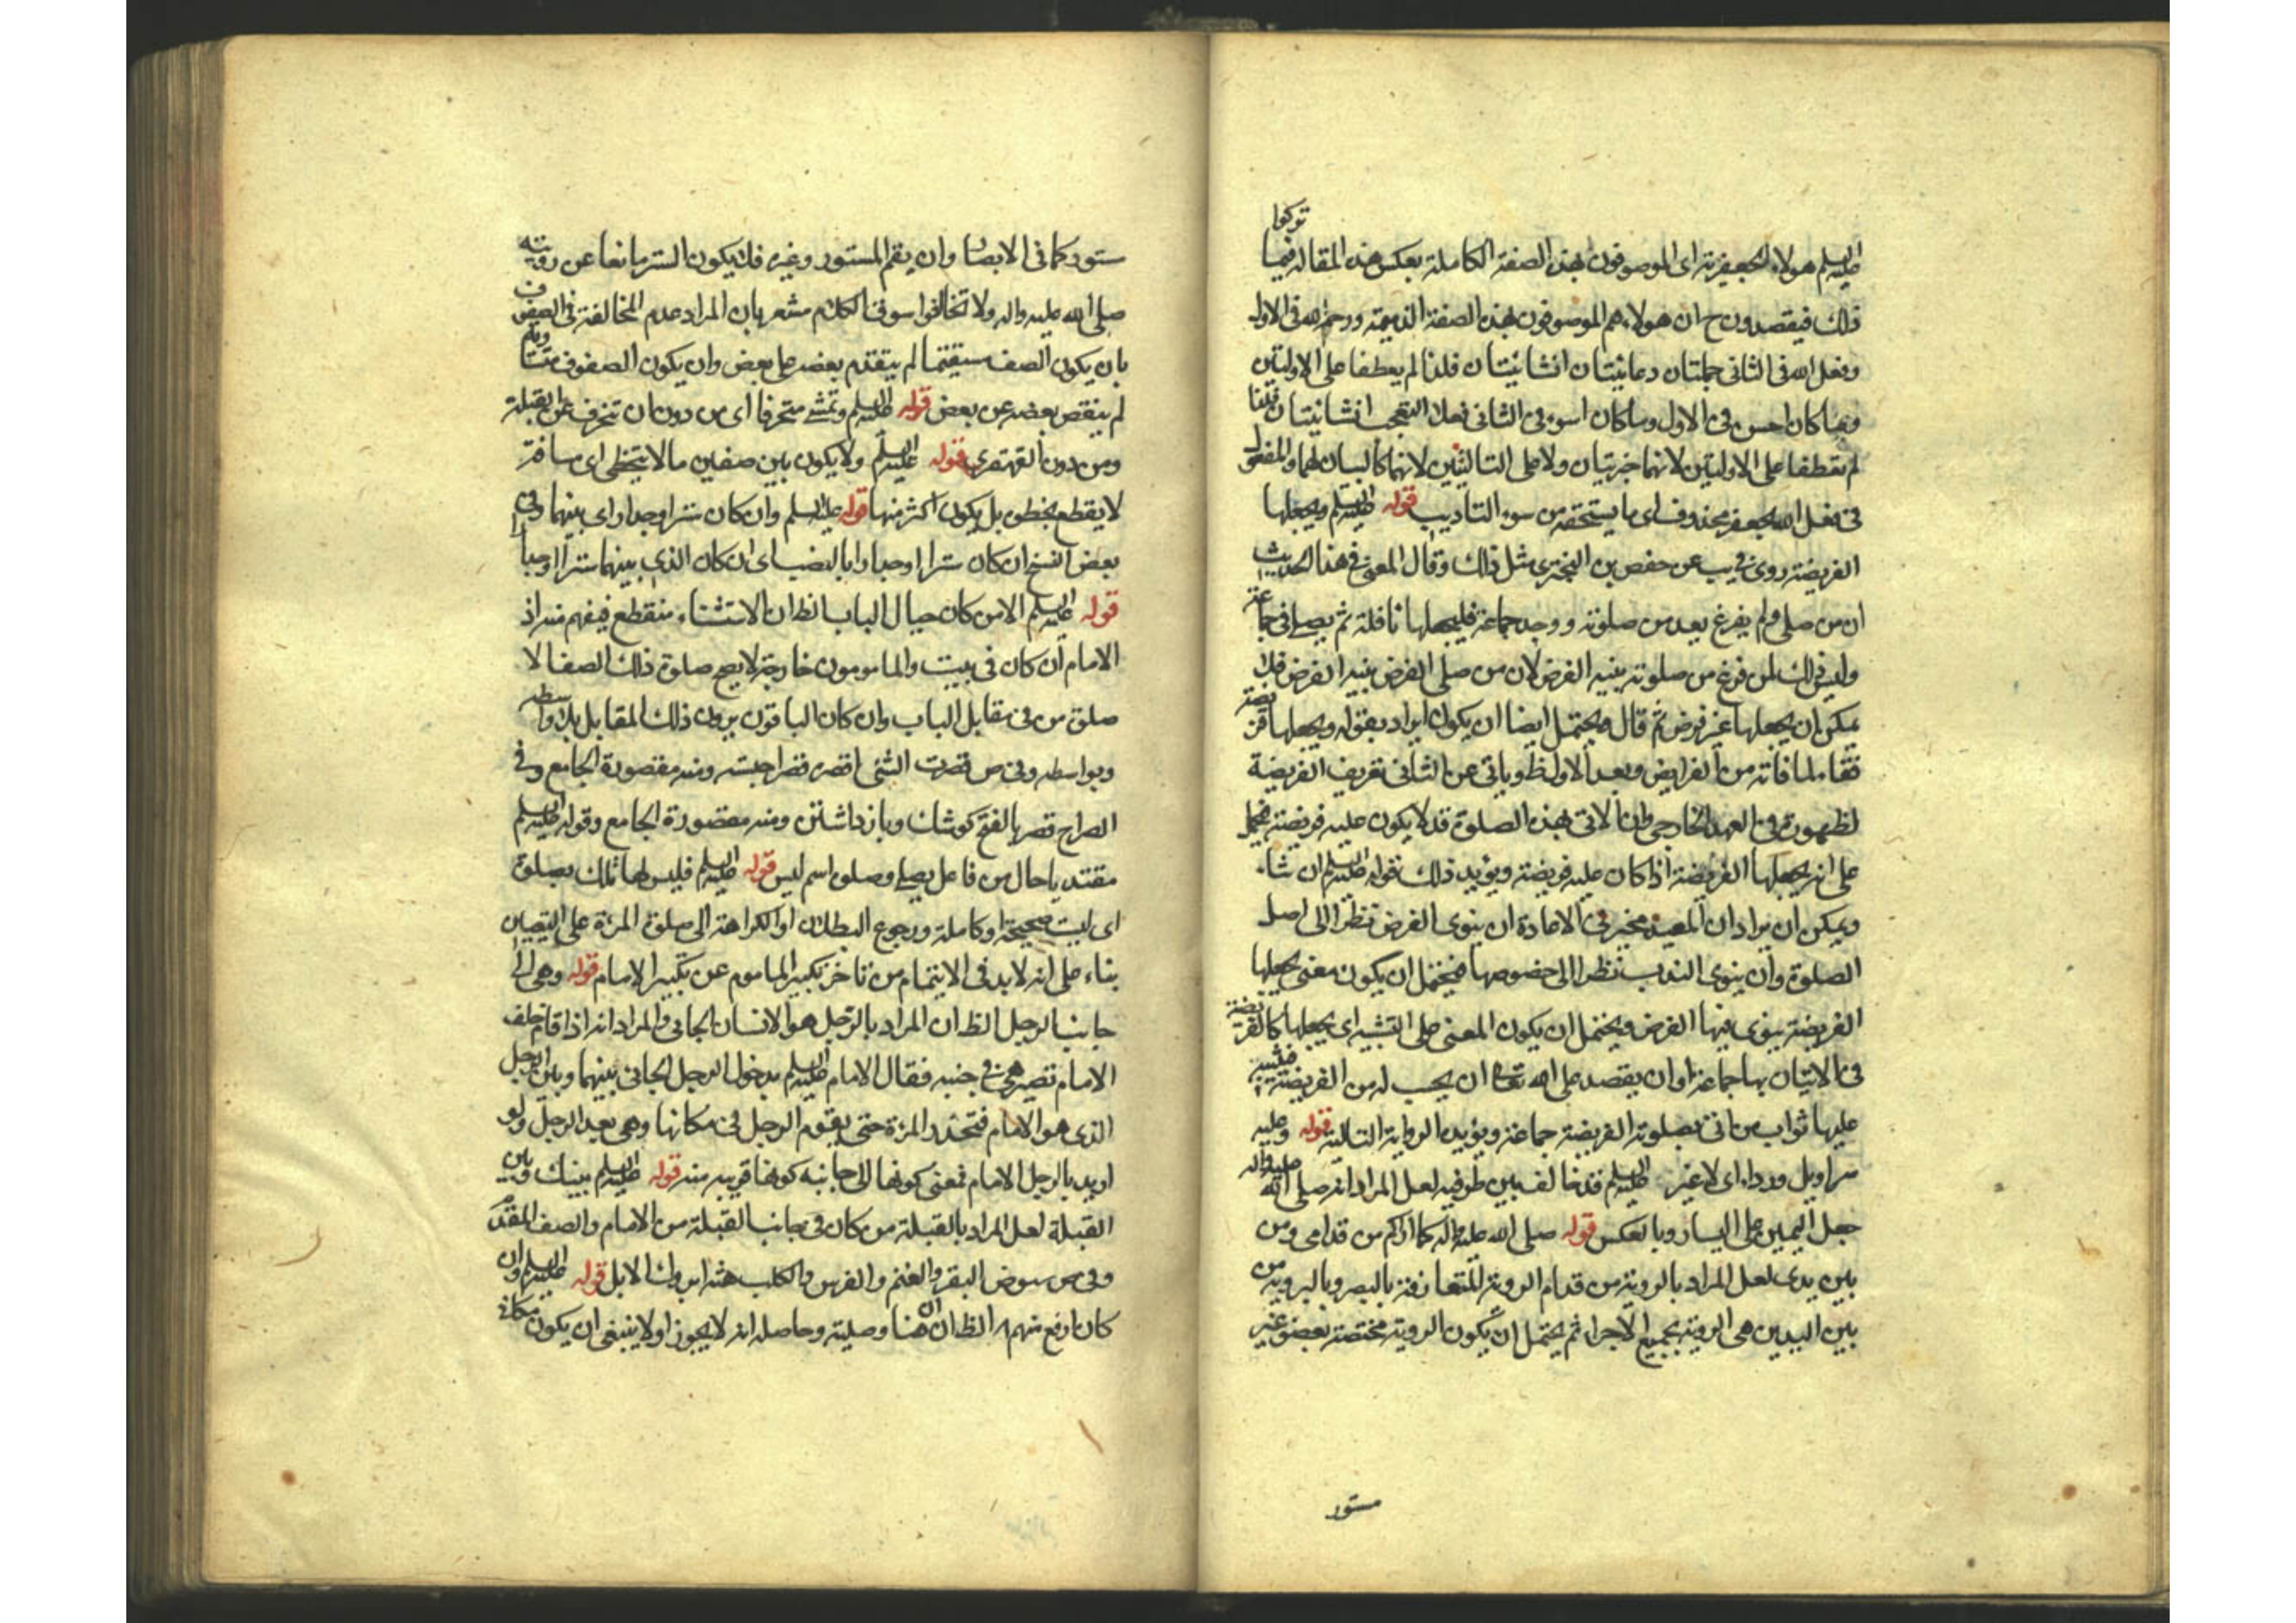 عليه السلم هولاء الجعفرية اى الموصوفون بهذه الصفة الكاملة بعكس هذه المقالة فيما تركوا
ذلك فيقصدون ح ان هولاء هم الموصوفون بهذه الصفة الذميمة ورحمة الله فى الاول
وفعل الله فى الثانى جملتان دعائيتان انشائيتان فلذا لم يعطفا على الاوليتين
وما كان احسن فى الاول وما كان اسوء فى الثانى فعلا التعجب انشائيتان فلذا
لم تعطفا على الاوليتين لانهما خبريتان ولا على التاليتين لانهما كالبيان لهما والمفعول
فى فعل الله بجعفر محذوف اى ما يستحقه من سوء التاديب قوله عليه السلم ويجعلها
الفريضة روى فى يب عن حفص بن البخترى مثل ذلك وقال المعنى فى هذا الحديث
ان من صلى ولم يفرغ بعد من صلوته ووجد جماعة فليجعلها نافلة ثم يصلى فى جماعة
وليس ذلك لمن فرغ من صلوته بنية الفرض لان من صلى الفرض بنية الفرض فلا
يمكن ان يجعلها غير فرض ثم قال ويحتمل ايضا ان يكون اراد بقوله ويجعلها فريضة
قضاء لما فاته من الفرايض وبعد الاول ظ وياتى عن الثانى تعريف الفريضة
لظهوره فى العهد الخارجى وان الاتى بهذه الصلوة قد لا يكون عليه فريضة فيحمل
على انه يجعلها الفريضة اذا كان عليه فريضة ويؤيد ذلك قوله عليه السلم ان شاء
ويمكن ان يراد ان المعيد مخير فى الاعادة ان ينوى الفرض نظرا الى اصل
الصلوة وان ينوى الندب نظرا الى خصوصها فيحتمل ان يكون معنى يجعلها
الفريضة ينوى فيها الفرض ويحتمل ان يكون المعنى على التشبيه اى يجعلها كالفريضة
فى الاتيان بها جماعة او ان يقصد على الله تعالى ان يحسب له من الفريضة فيثيبه
عليها ثواب من اتى بصلوته الفريضة جماعة ويؤيده الرواية التالية قوله وعليه
سراويل ورداء اى لا غير عليه السلم قد خالف بين طرفيه لعل المراد انه صلى الله عليه واله
جعل اليمين على اليسار وبالعكس قوله صلى الله عليه واله كما اراكم من قدامى ومن
بين يدى لعل المراد بالروية من قدام الروية المتعارفة بالبصر وبالروية من
بين اليدين هى الروية بجميع الاجزاء ثم يحتمل ان يكون الروية مختصة بعضو غير
مستور
ستور كما فى الابصار وان يقم المستور وغيره فلا يكون الستر مانعا عن رويته
صلى الله عليه واله ولا تخالفوا سوق الكلام مشعر بان المراد عدم المخالفة فى الصفوف
بان يكون الصف مستقيما لم يتقدم بعضه على بعض وان يكون الصفوف متساوية
لم ينقص بعضه عن بعض قوله عليه السلم وتمشى منحرفا اى من دون ان تنحرف عن القبلة
ومن دون القهقرى قوله عليه السلم ولا يكون بين صفين ما لا يتخطى اى مسافة
لا يقطع بخطوة بل يكون اكثر منها قوله عليه السلم وان كان سترا وجدار اى بينهما وفى
بعض النسخ ان كان سترا او جدارا بالنصب اى ان كان الذى بينهما سترا او جدارا
قوله عليه السلم الا من كان حيال الباب الظ ان الاستثناء منقطع فيفهم منه اذ
الامام ان كان فى بيت والمامومون خارجة لا يصح صلوة ذلك الصف الا
صلوة من فى مقابل الباب وان كان الباقون يرون ذلك المقابل بلا واسطه
وبواسطه وفى ص قصرت الشئ اقصره قصرا حبسته ومنه مقصورة الجامع وفى
الصراح قصر بالفتح كوشك وباز داشتن ومنه مقصورة الجامع وقوله عليه السلم
مقتديا حال من فاعل يصلى وصلوة اسم ليس قوله عليه السلم فليس لها تلك بصلوة
اى ليست صحيحة او كاملة ورجوع البطلان او الكراهة الى صلوة المرءة على التعيين
بناء على انه لا بد فى الايتمام من تاخر تكبير الماموم عن تكبير الامام قوله وهى الى
جانب الرجل الظ ان المراد بالرجل هو الانسان الجائى والمراد انه اذا قام خلف
الامام تصير هى فى جنبه فقال الامام عليه السلم يدخل الرجل الجائى بينهما وبين الرجل
الذى هو الامام فتنحدر المرءة حتى يقوم الرجل فى مكانها وهى بعد الرجل ولو
اريد بالرجل الامام فمعنى كونها الى جانبه كونها قريبه منه قوله عليه السلم بينك وبين
القبلة لعل المراد بالقبلة من كان فى جانب القبلة من الامام والصف المقدم
وفى ص ربوض البقر والغنم والفرس والكلب مثل بروك الابل قوله عليه السلم وان
كان ارفع منهم الظ ان ان هنا وصلية وحاصله انه لا يجوز او لا ينبغى ان يكون مكانه